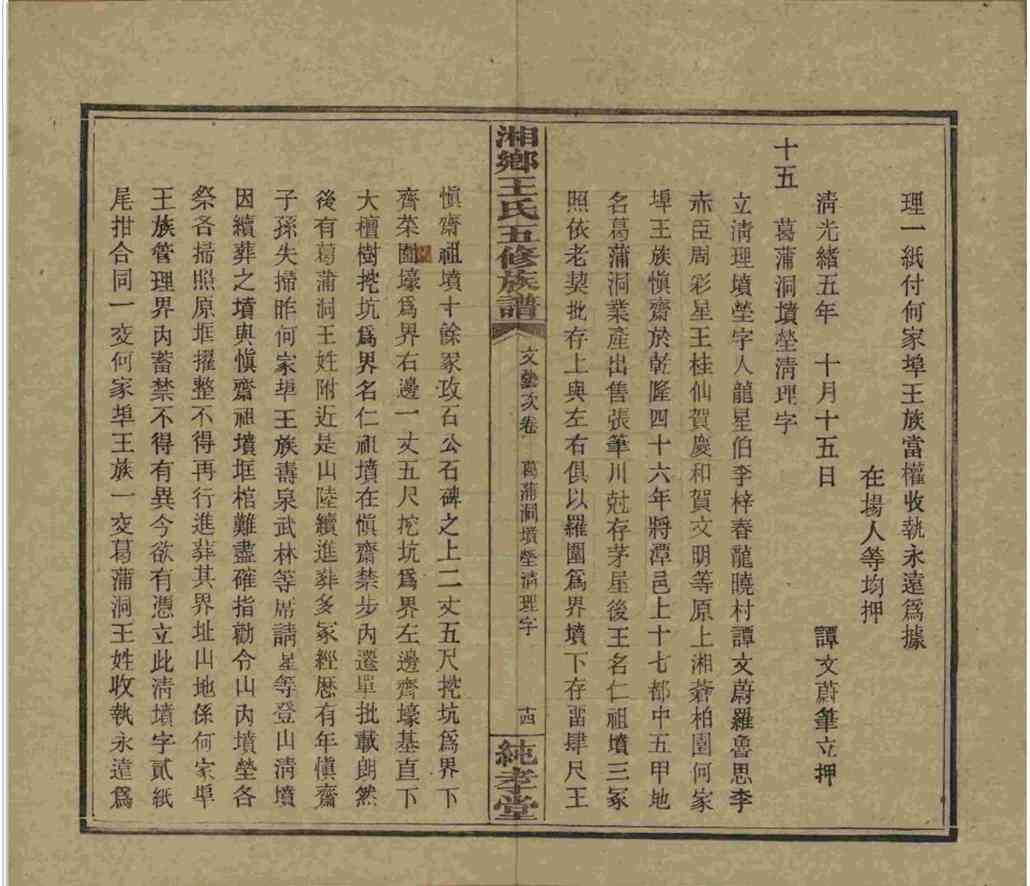 理一紙付何家埠王族當權收執永遠爲據
在塲人等均押
清光緒五年 十月十五日 譚文蔚筆立押
十五 葛蒲洞墳塋清理字
立清理墳塋字人龍星伯李梓春龍曉村譚文蔚羅魯思李
赤臣周彩星王桂仙賀慶和賀文明等原上湘蒼柏圍何家
埠王族愼齋於乾隆四十六年將潭邑上十七都中五甲地
名葛蒲洞業產出售張筆川尅存茅星後王名仁祖墳三冢
照依老契批存上與左右俱以羅圍爲界墳下存畱肆尺王
湘鄉王氏五修族譜 文藝次卷 葛蒲洞墳塋清理字 十四 純孝堂
愼齋祖墳十餘冢攻石公石碑之上二丈五尺挖坑爲界下
齊菜園壕爲界右邊一丈五尺挖坑爲界左邊齊壕基直下
大檀樹挖坑爲界名仁祖墳在愼齋禁步內遷單批載朗然
後有葛蒲洞王姓附近是山陸續進葬多冢經歷有年愼齋
子孫失掃昨何家埠王族壽泉武林等席請星等登山清墳
因續葬之墳與愼齋祖墳框棺難盡確指勸令山內墳塋各
祭各掃照原框擢整不得再行進葬其界址山地係何家埠
王族管理界內蓄禁不得有異今欲有憑立此清墳字貳紙
尾拑合同一交何家埠王族一交葛蒲洞王姓收執永遠爲